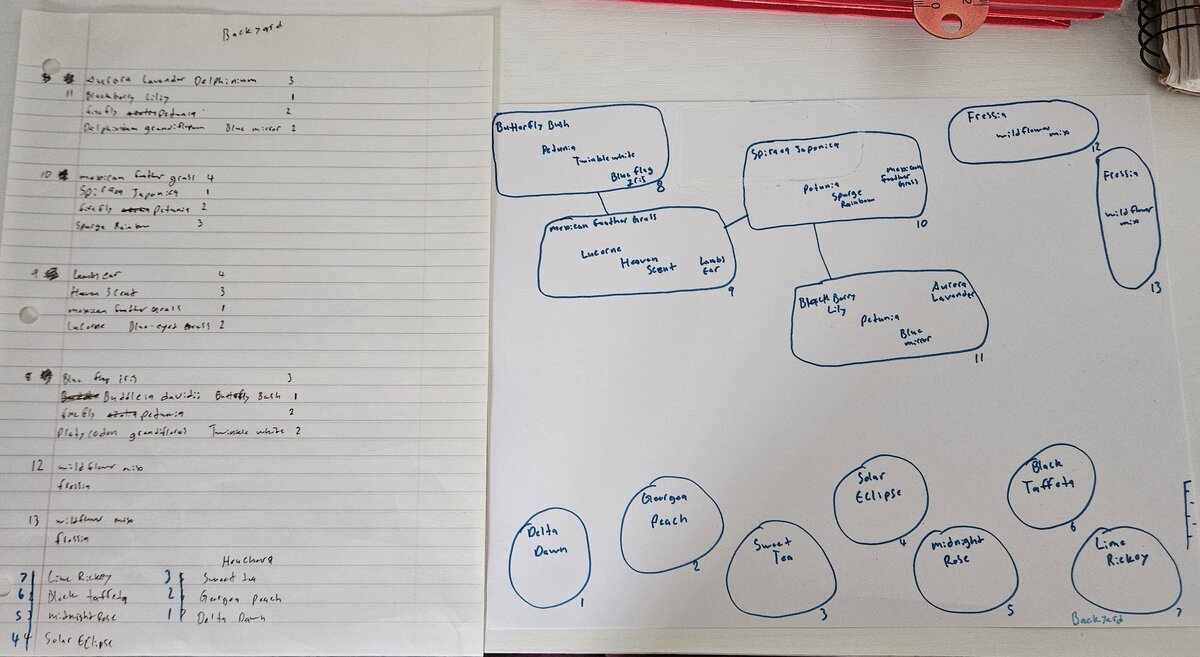 Backyard
Aurora Lavender Delphinium 3
11 Blackberry Lilly 1
firefly petunia 2
Delphinium grandiflorum Blue mirror 2
10 mexican feather grass 4
Spiraea Japonica 1
firefly petunia 2
Spurge Rainbow 3
9 Lambs ear 4
Heaven Scent 3
mexican feather Grass 1
Lucerne Blue-eyed Grass 2
8 Blue flag iris 3
Buddleia davidii Butterfly Bush 1
firefly petunia 2
Platycodon grandiflorus Twinkle white 2
12 wildflower mix
fressia
13 wildflower mix
fressia
Heuchera
7 Lime Rickey 3 Sweet tea
6 Black taffeta 2 Georgea Peach
5 midnight Rose 1 Delta Dawn
4 Solar Eclipse
Butterfly Bush
Petunia
Twinkle white
Blue flag
Iris
8
mexican feather Grass
Lucerne
Heaven
Scent
Lambs
Ear
9
Spiraea Japonica
mexican
feather
Grass
Petunia
Spurge
Rainbow
10
Black Berry
Lily
Aurora
Lavander
Petunia
Blue
mirror
11
Fressia
wildflower
mix
12
Fressia
wildflower
mix
13
Delta
Dawn
1
Georgea
Peach
2
Sweet
Tea
3
Solar
Eclipse
4
midnight
Rose
5
Black
Taffeta
6
Lime
Rickey
7
Backyard